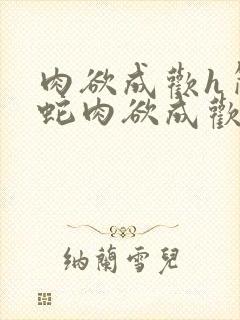 肉欲成歡h
蛇肉欲成歡
納蘭雪兒